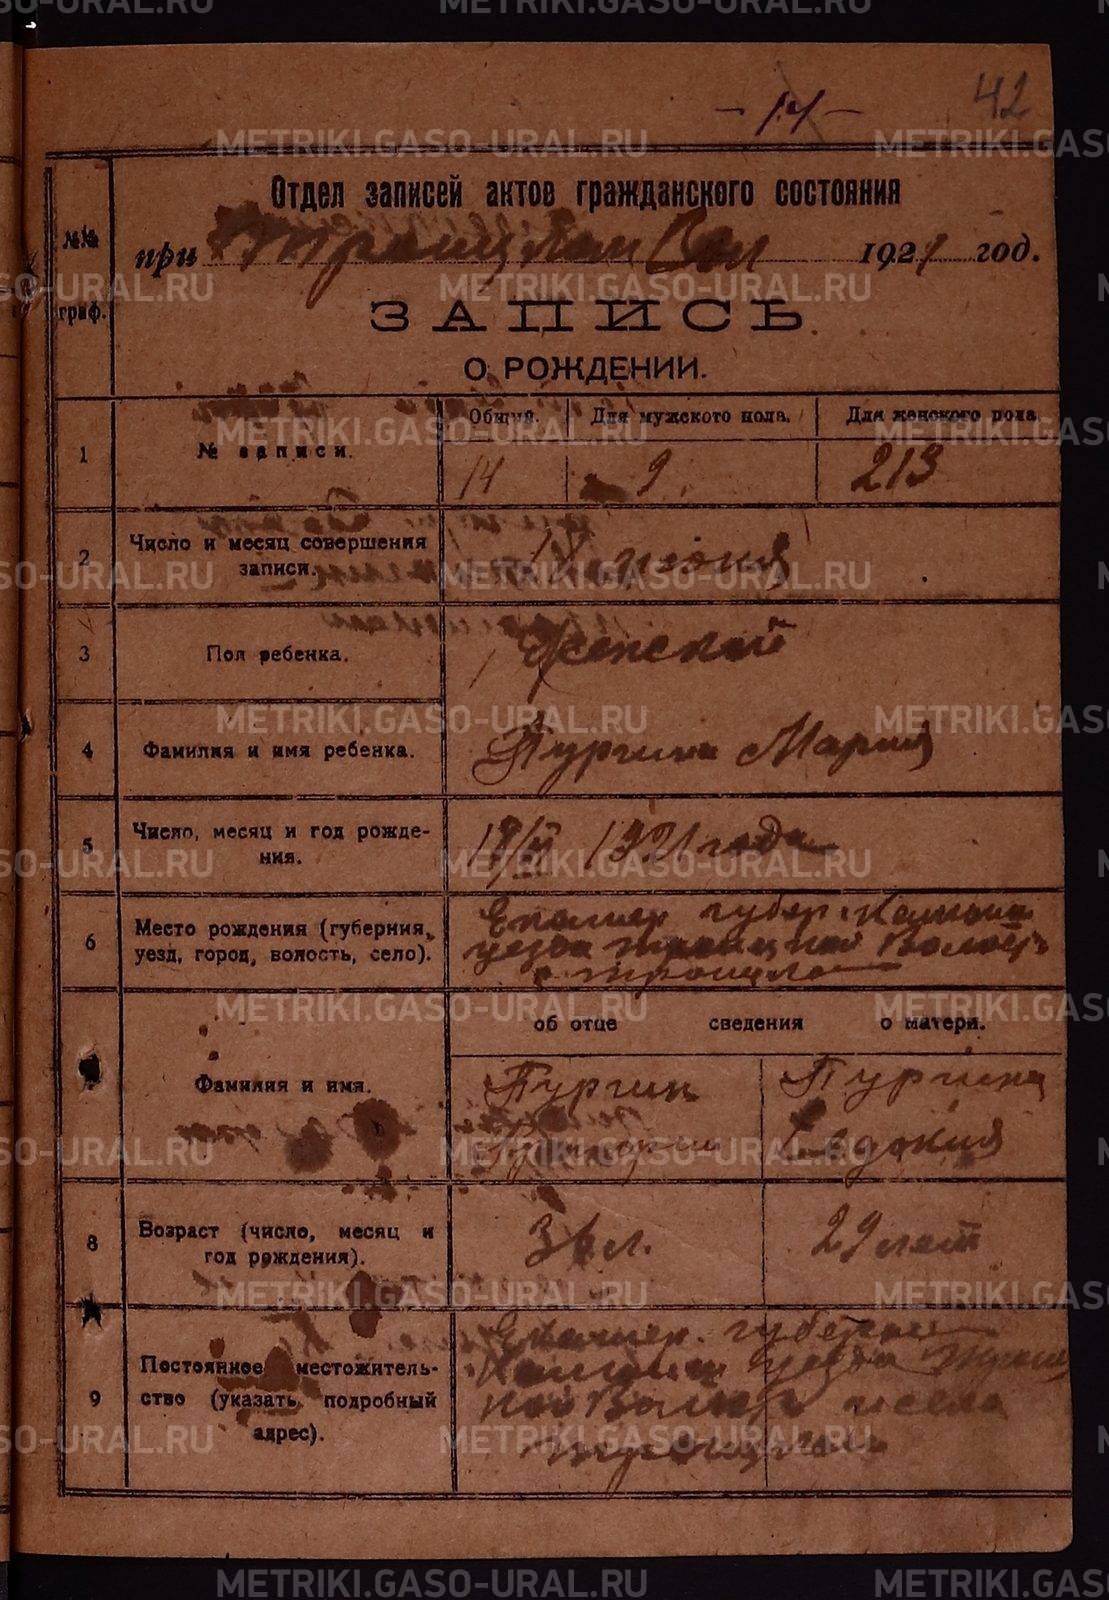 42
- 14 -
Отдел записей актов гражданского состояния
№№ граф.
при Троицкой Вол 1921 год.
ЗАПИСЬ
О РОЖДЕНИИ.
1 № записи. Общий. Для мужского пола. Для женского пола
14 9 213
2 Число и месяц совершения
записи.
июня
3 Пол ребенка. Женской
4 Фамилия и имя ребенка. Пургина Мария
5 Число, месяц и год рожде-
ния.
1921 года
6 Место рождения (губерния,
уезд, город, волость, село).
Екатер губер
уезда Троицкой Волос
с Троицко
об отце сведения о матери.
Фамилия и имя.
Пургин Пургина
Григорий Евдокия
8 Возраст (число, месяц и
год рождения).
36 л. 29 лет
9 Постоянное местожитель-
ство (указать подробный
адрес).
Екатер. губерни
уезда
села
METRIKI.GASO-URAL.RU